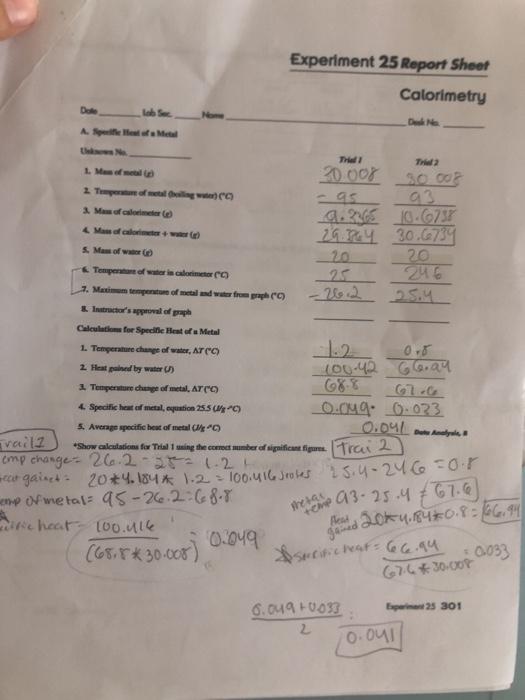 Experiment 25 Report Sheet
Calorimetry
Date Lab Sec. Name Desk No.
A. Specific Heat of a Metal
Unknown No. Trial 1 Trial 2
1. Mass of metal (g) 30.008 30.008
2. Temperature of metal (boiling water) (°C) 95 93
3. Mass of calorimeter (g) 10.6738
4. Mass of calorimeter + water (g) 30.6734
5. Mass of water (g) 20 20
6. Temperature of water in calorimeter (°C) 25 24.6
7. Maximum temperature of metal and water from graph (°C) 26.2 25.4
8. Instructor's approval of graph
Calculations for Specific Heat of a Metal
1. Temperature change of water, ΔT (°C) 1.2 0.8
2. Heat gained by water (J) 100.42 66.94
3. Temperature change of metal, ΔT (°C) 68.8 67.6
4. Specific heat of metal, equation 25.5 (J/g·°C) 0.049 0.033
5. Average specific heat of metal (J/g·°C) 0.041 Data Analysis, B
*Show calculations for Trial 1 using the correct number of significant figures.
Trail 1
emp change = 26.2 - 25 = 1.2
gained = 20*4.184* 1.2 = 100.416 Joles
emp of metal = 95 - 26.2 = 68.8
heat = 100.416 / (68.8 * 30.008) = 0.049
Trai 2
25.4 - 24.6 = 0.8
metal temp 93 - 25.4 = 67.6
Heat gained 20*4.184*0.8 = 66.94
specific heat = 66.94 / 67.6 * 30.008 = 0.033
0.049 + 0.033 / 2 = 0.041
Experiment 25 301